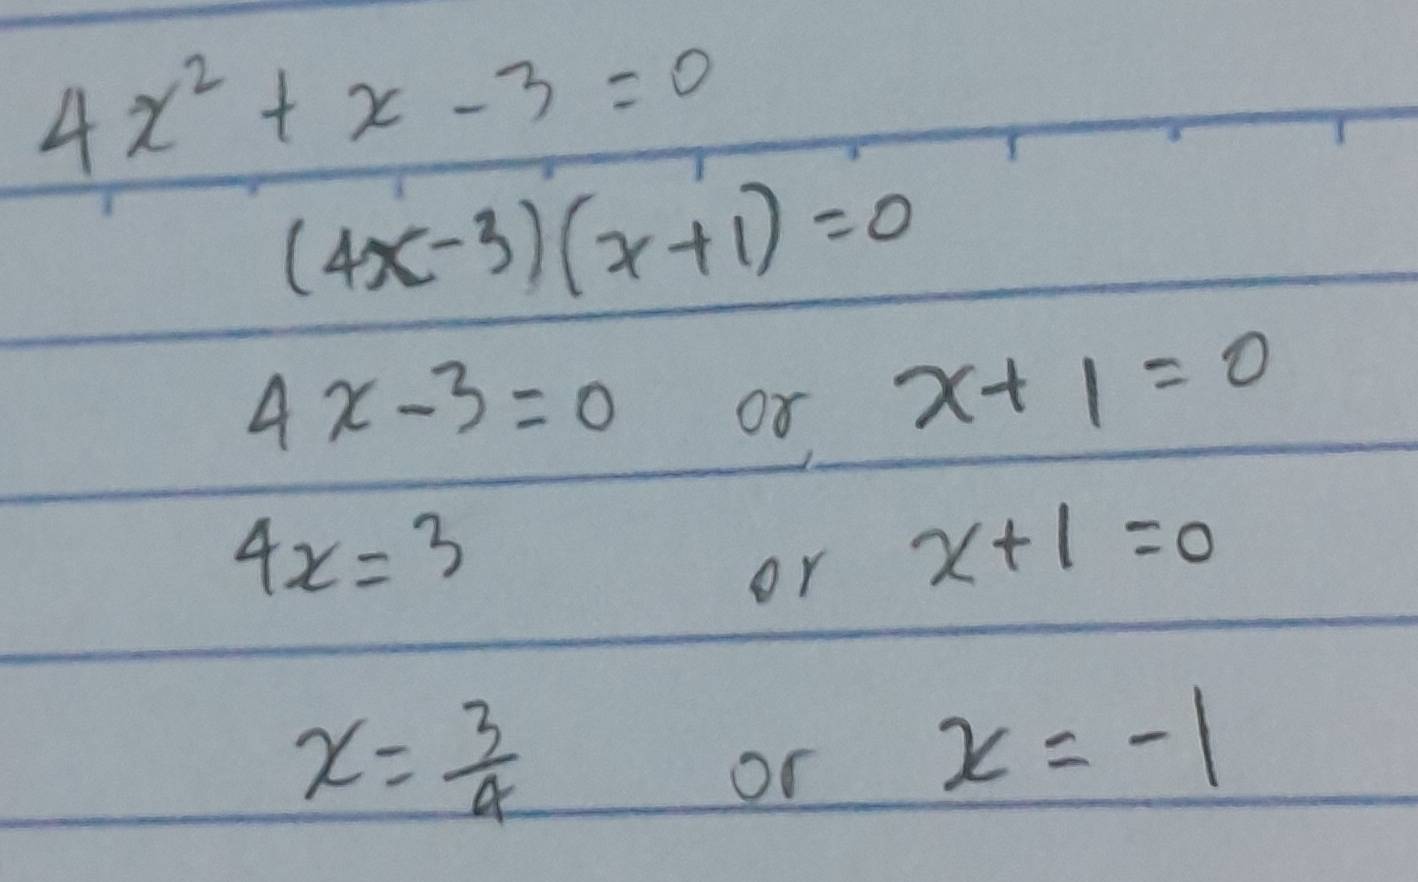 4x² + x - 3 = 0
(4x-3)(x+1) = 0
4x-3=0 or x+1=0
4x=3 or x+1=0
x=3/4 or x=-1